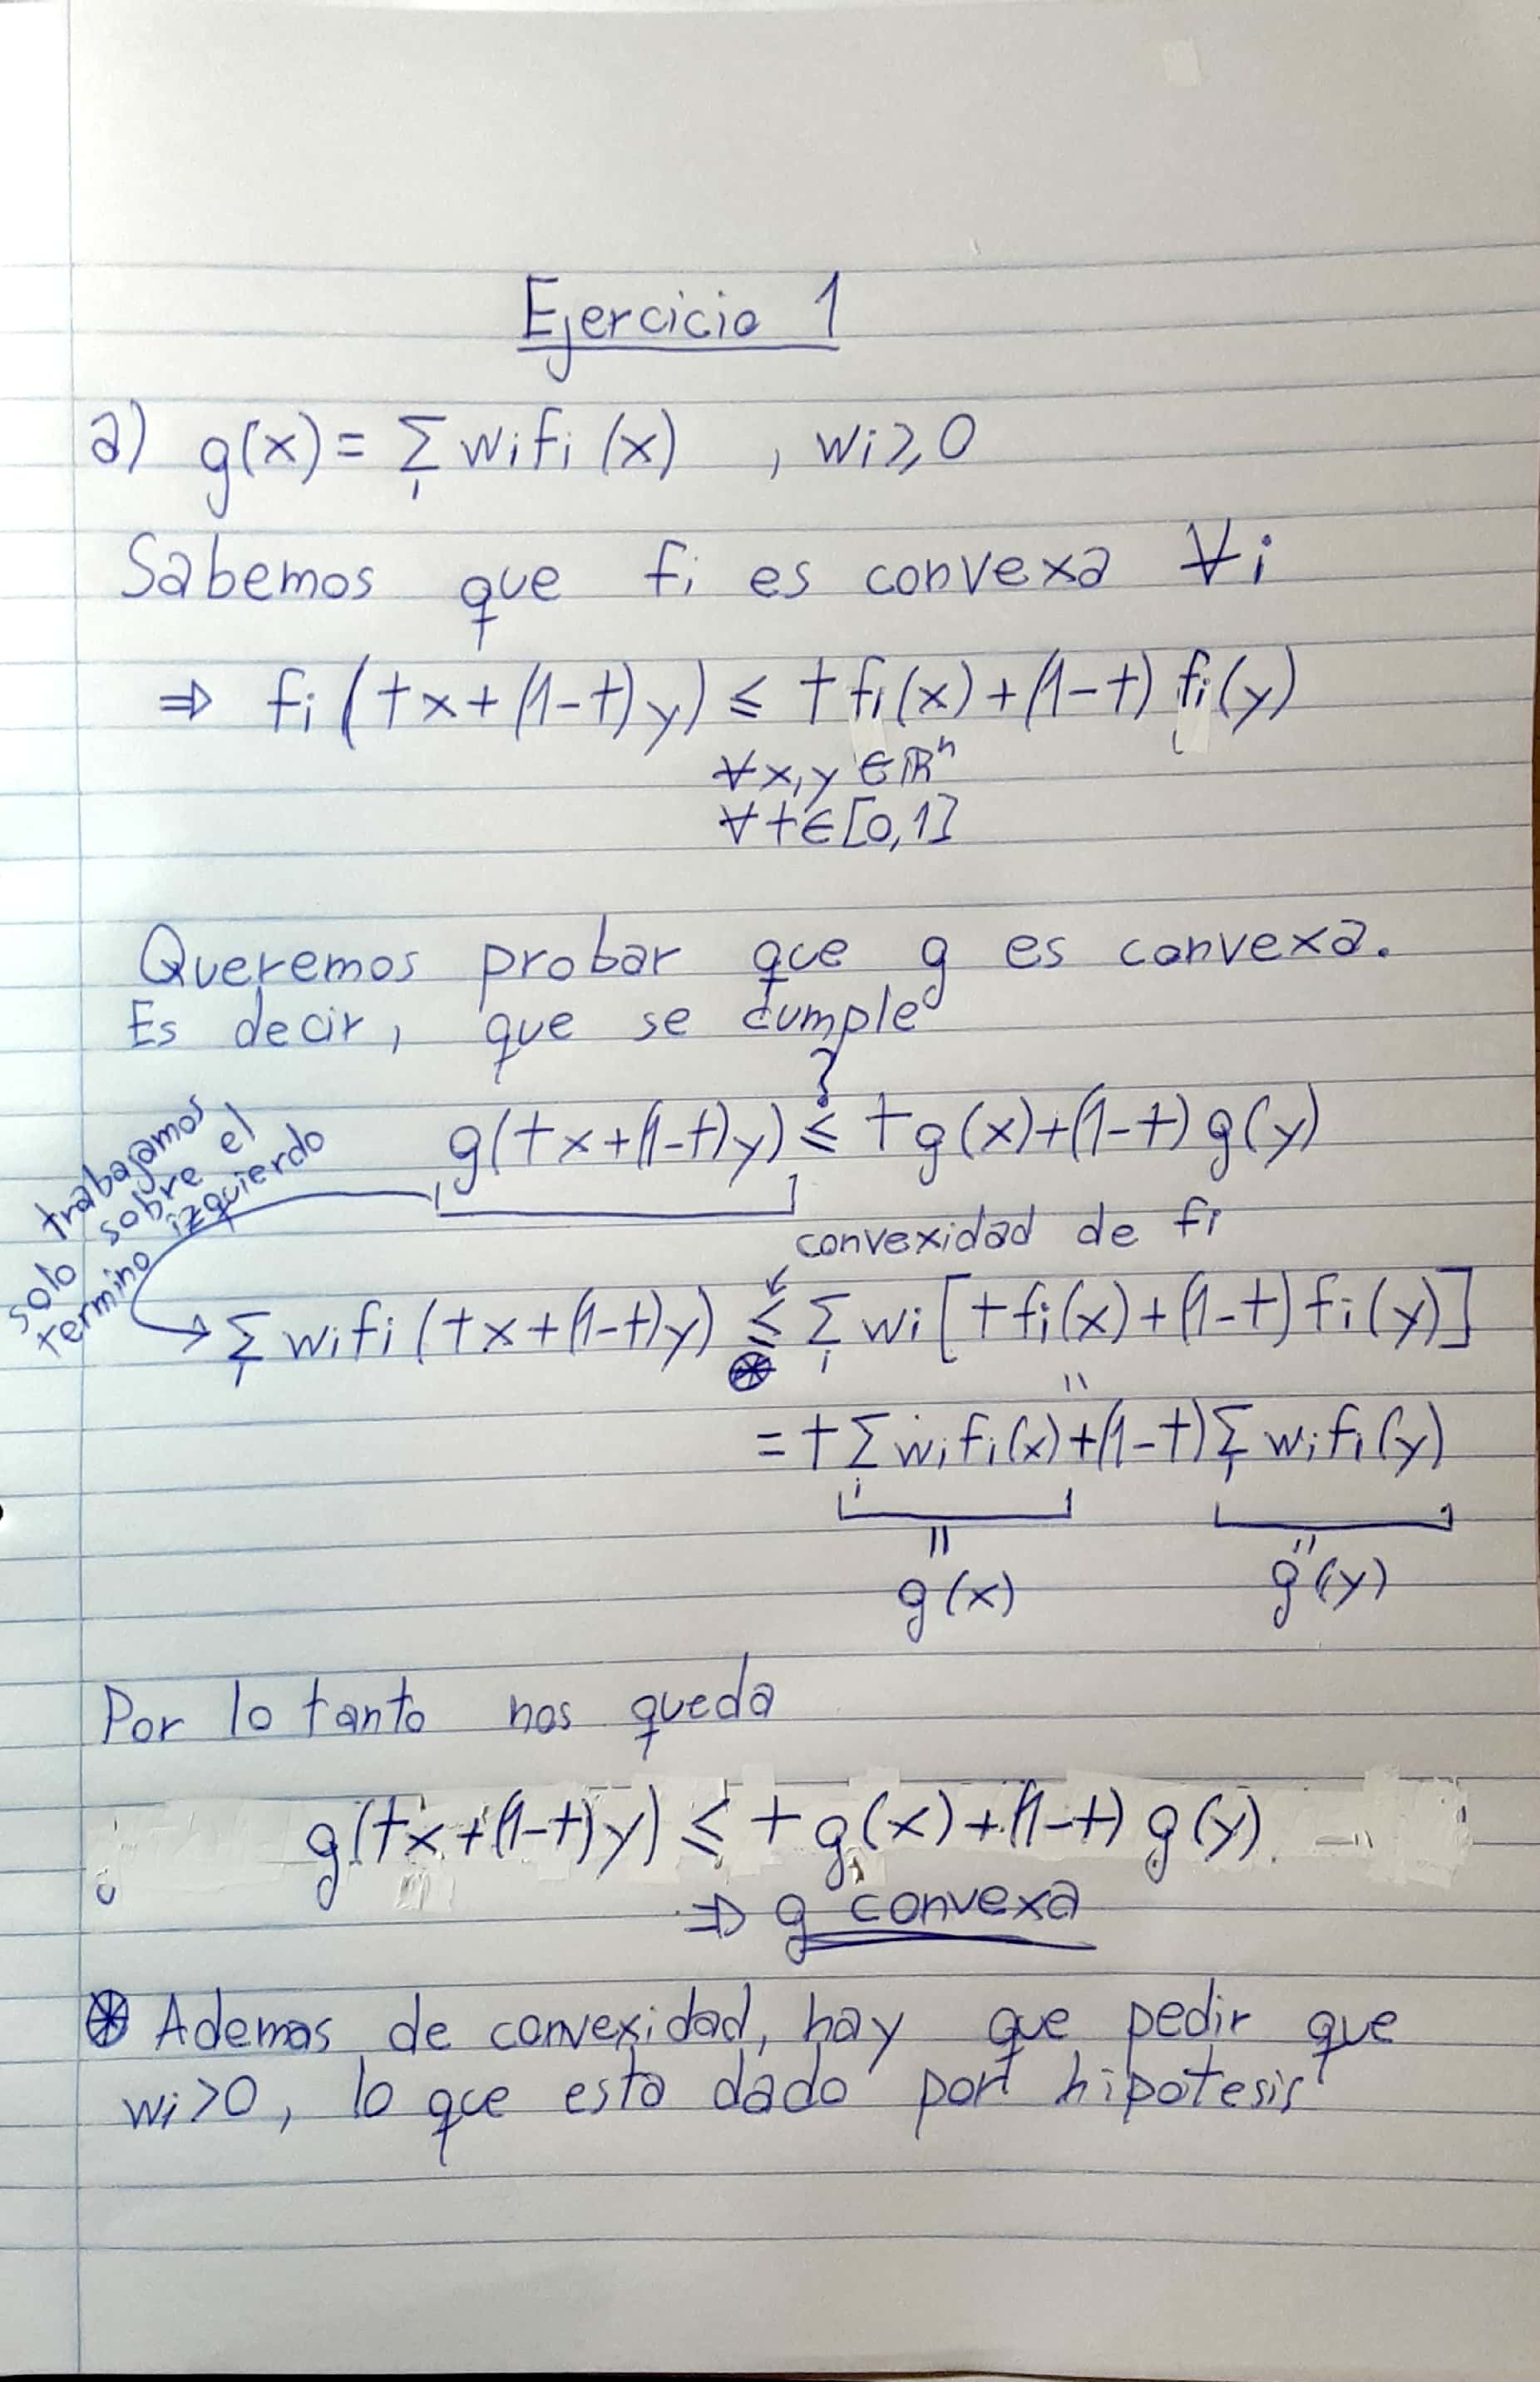 Ejercicio 1
a) g(x) = Σ_i wi fi (x) , wi ≥ 0
Sabemos que fi es convexa ∀i
⇒ fi (tx+(1-t)y) ≤ t fi(x)+(1-t) fi(y)
∀x,y ∈ ℝⁿ
∀t∈[0,1]
Queremos probar que g es convexa.
Es decir, que se cumple
?
g(tx+(1-t)y) ≤ t g(x)+(1-t) g(y)
solo trabajamos
sobre el
termino izquierdo
convexidad de fi
→ Σ_i wi fi (tx+(1-t)y) ≤ Σ_i wi [t fi(x)+(1-t) fi(y)]
⊛ "
= t Σ_i wi fi(x) + (1-t) Σ_i wi fi(y)
" "
g(x) g(y)
Por lo tanto nos queda
g(tx+(1-t)y) ≤ t g(x)+(1-t) g(y)
⇒ g convexa
⊛ Ademas de convexidad, hay que pedir que
wi>0, lo que esta dado por hipotesis